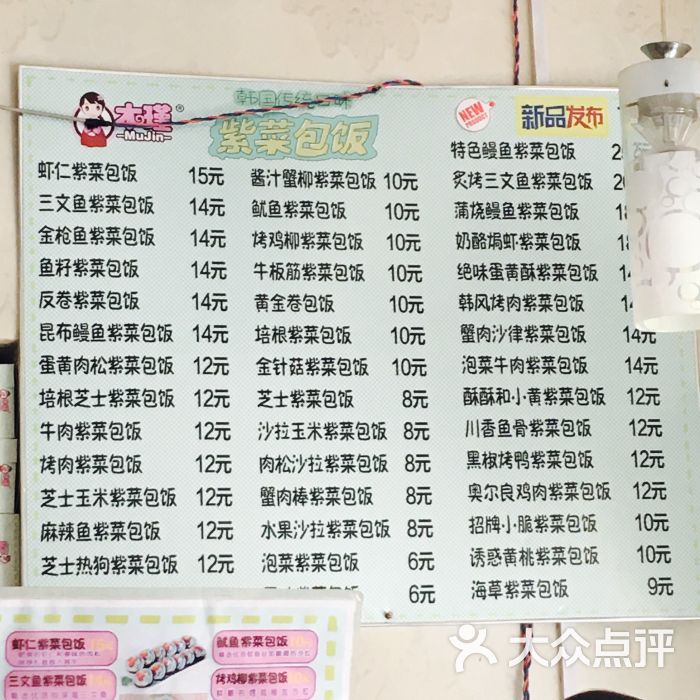 木槿®
-MuJin-
韩国传统口味
紫菜包饭
NEW
PRODUCT
新品发布
虾仁紫菜包饭 15元
三文鱼紫菜包饭 14元
金枪鱼紫菜包饭 14元
鱼籽紫菜包饭 14元
反卷紫菜包饭 14元
昆布鳗鱼紫菜包饭 14元
蛋黄肉松紫菜包饭 12元
培根芝士紫菜包饭 12元
牛肉紫菜包饭 12元
烤肉紫菜包饭 12元
芝士玉米紫菜包饭 12元
麻辣鱼紫菜包饭 12元
芝士热狗紫菜包饭 12元
酱汁蟹柳紫菜包饭 10元
鱿鱼紫菜包饭 10元
烤鸡柳紫菜包饭 10元
牛板筋紫菜包饭 10元
黄金卷包饭 10元
培根紫菜包饭 10元
金针菇紫菜包饭 10元
芝士紫菜包饭 8元
沙拉玉米紫菜包饭 8元
肉松沙拉紫菜包饭 8元
蟹肉棒紫菜包饭 8元
水果沙拉紫菜包饭 8元
泡菜紫菜包饭 6元
紫菜包饭 6元
特色鳗鱼紫菜包饭
炙烤三文鱼紫菜包饭
蒲烧鳗鱼紫菜包饭
奶酪焗虾紫菜包饭
绝味蛋黄酥紫菜包饭 14
韩风烤肉紫菜包饭 14
蟹肉沙律紫菜包饭 14元
泡菜牛肉紫菜包饭 14元
酥酥和小黄紫菜包饭 12元
川香鱼骨紫菜包饭 12元
黑椒烤鸭紫菜包饭 12元
奥尔良鸡肉紫菜包饭 12元
招牌小脆紫菜包饭 10元
诱惑黄桃紫菜包饭 10元
海草紫菜包饭 9元
虾仁紫菜包饭
鱿鱼紫菜包饭
三文鱼紫菜包饭
烤鸡柳紫菜包饭
大众点评